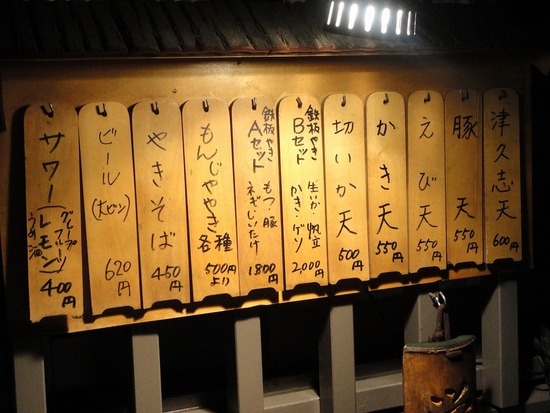 津久志天 600円
豚天 550円
えび天 550円
かき天 550円
切いか天 500円
鉄板やき
Bセット 生いか・帆立
かき・ゲソ
2,000円
鉄板やき
Aセット もつ・豚
ネギ・しいたけ
1800円
もんじゃやき 各種
500円より
やきそば 450円
ビール (大ビン) 620円
サワー (レモン
グレープフルーツ
うめ酒) 400円